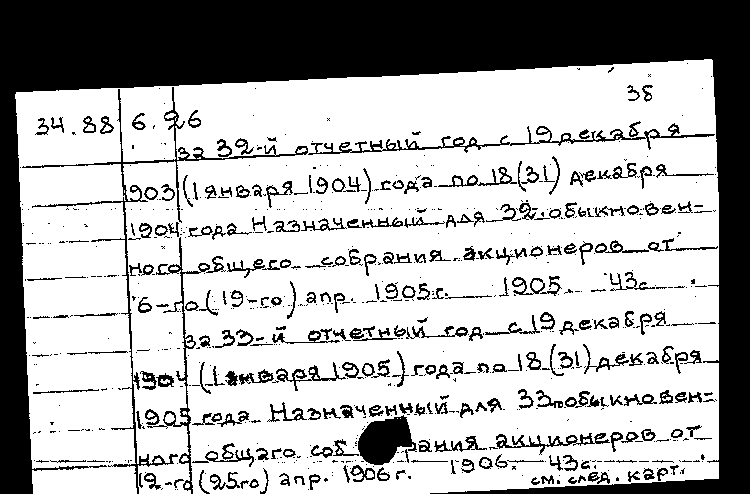 38
34.88 6.26
за 32-й отчетный год с 19 декабря
1903 (1 января 1904) года по 18 (31) декабря
1904 года Назначенный для 32-обыкновен-
ного общего собрания акционеров от
6-го (19-го) апр. 1905г. 1905. 43с.
за 33-й отчетный год с 19 декабря
1904 (1 января 1905) года по 18 (31) декабря
1905 года. Назначенный для 33 обыкновен-
ного общаго соб рания акционеров от
12-го (25го) апр. 1906г. 1906. 43с.
см. след. карт.